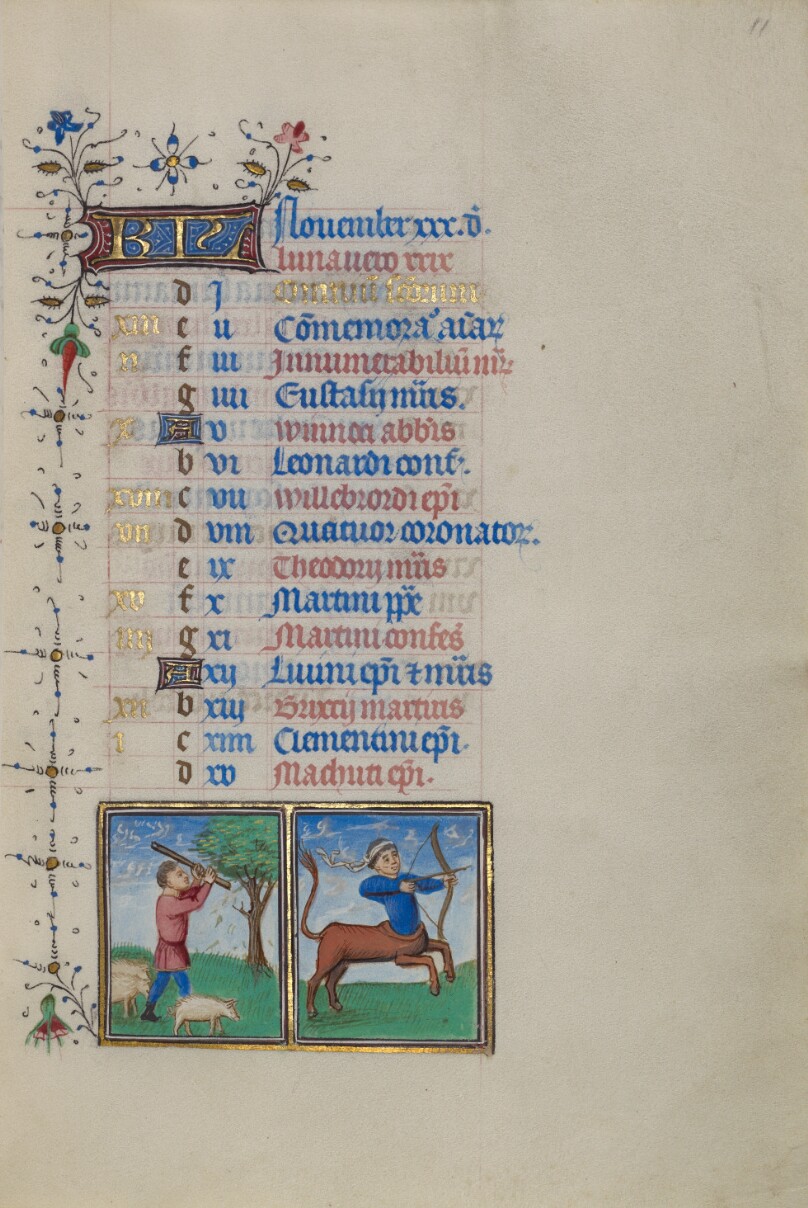 11
KL Nouember xxx. d̄.
luna uero xxix
d j Omniū sc̄orum
xiii e ii Cōmemora° aīaꝝ
ii f iii Innumerabiliū mr̄
g iiii Eustasij mr̄is.
x A v winnoci abb̄is
b vi Leonardi conf̄.
xviii c vii willebrordi ep̄i
vii d viii Quatuor coronatoꝝ.
e ix Theodorij mr̄is
xv f x Martini pp̄e
iiii g xi Martini confes̄
A xij Liuini ep̄i ⁊ mr̄is
xii b xiij Briccij martiris
i c xiiii Clementini ep̄i.
d xv Machuti ep̄i.